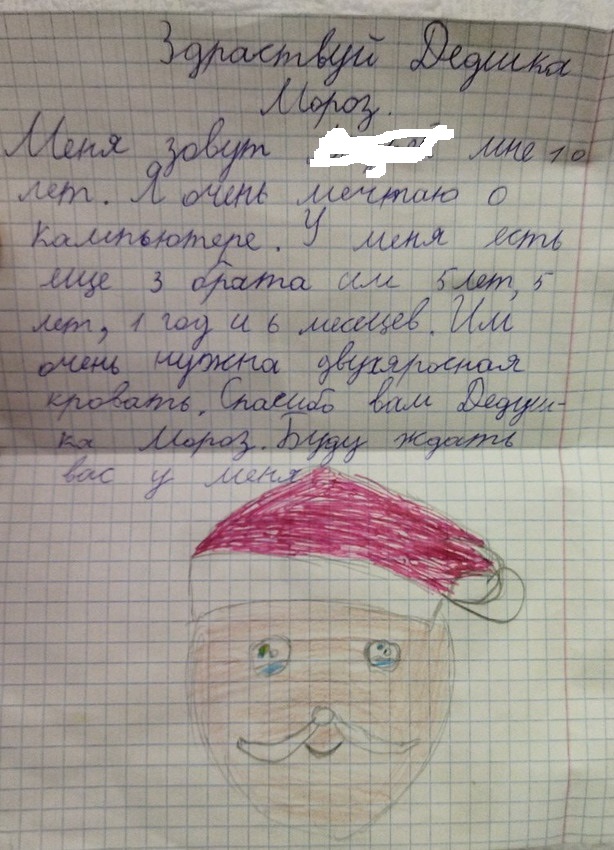 Здраствуй Дедушка
Мороз.
Меня зовут мне 10
лет. Я очень мечтаю о
кампьютере. У меня есть
еще 3 брата им 5 лет, 5
лет, 1 год и 6 месяцев. Им
очень нужна двухяросная
кровать. Спасибо вам Дедуш-
ка Мороз. Буду ждать
вас у меня